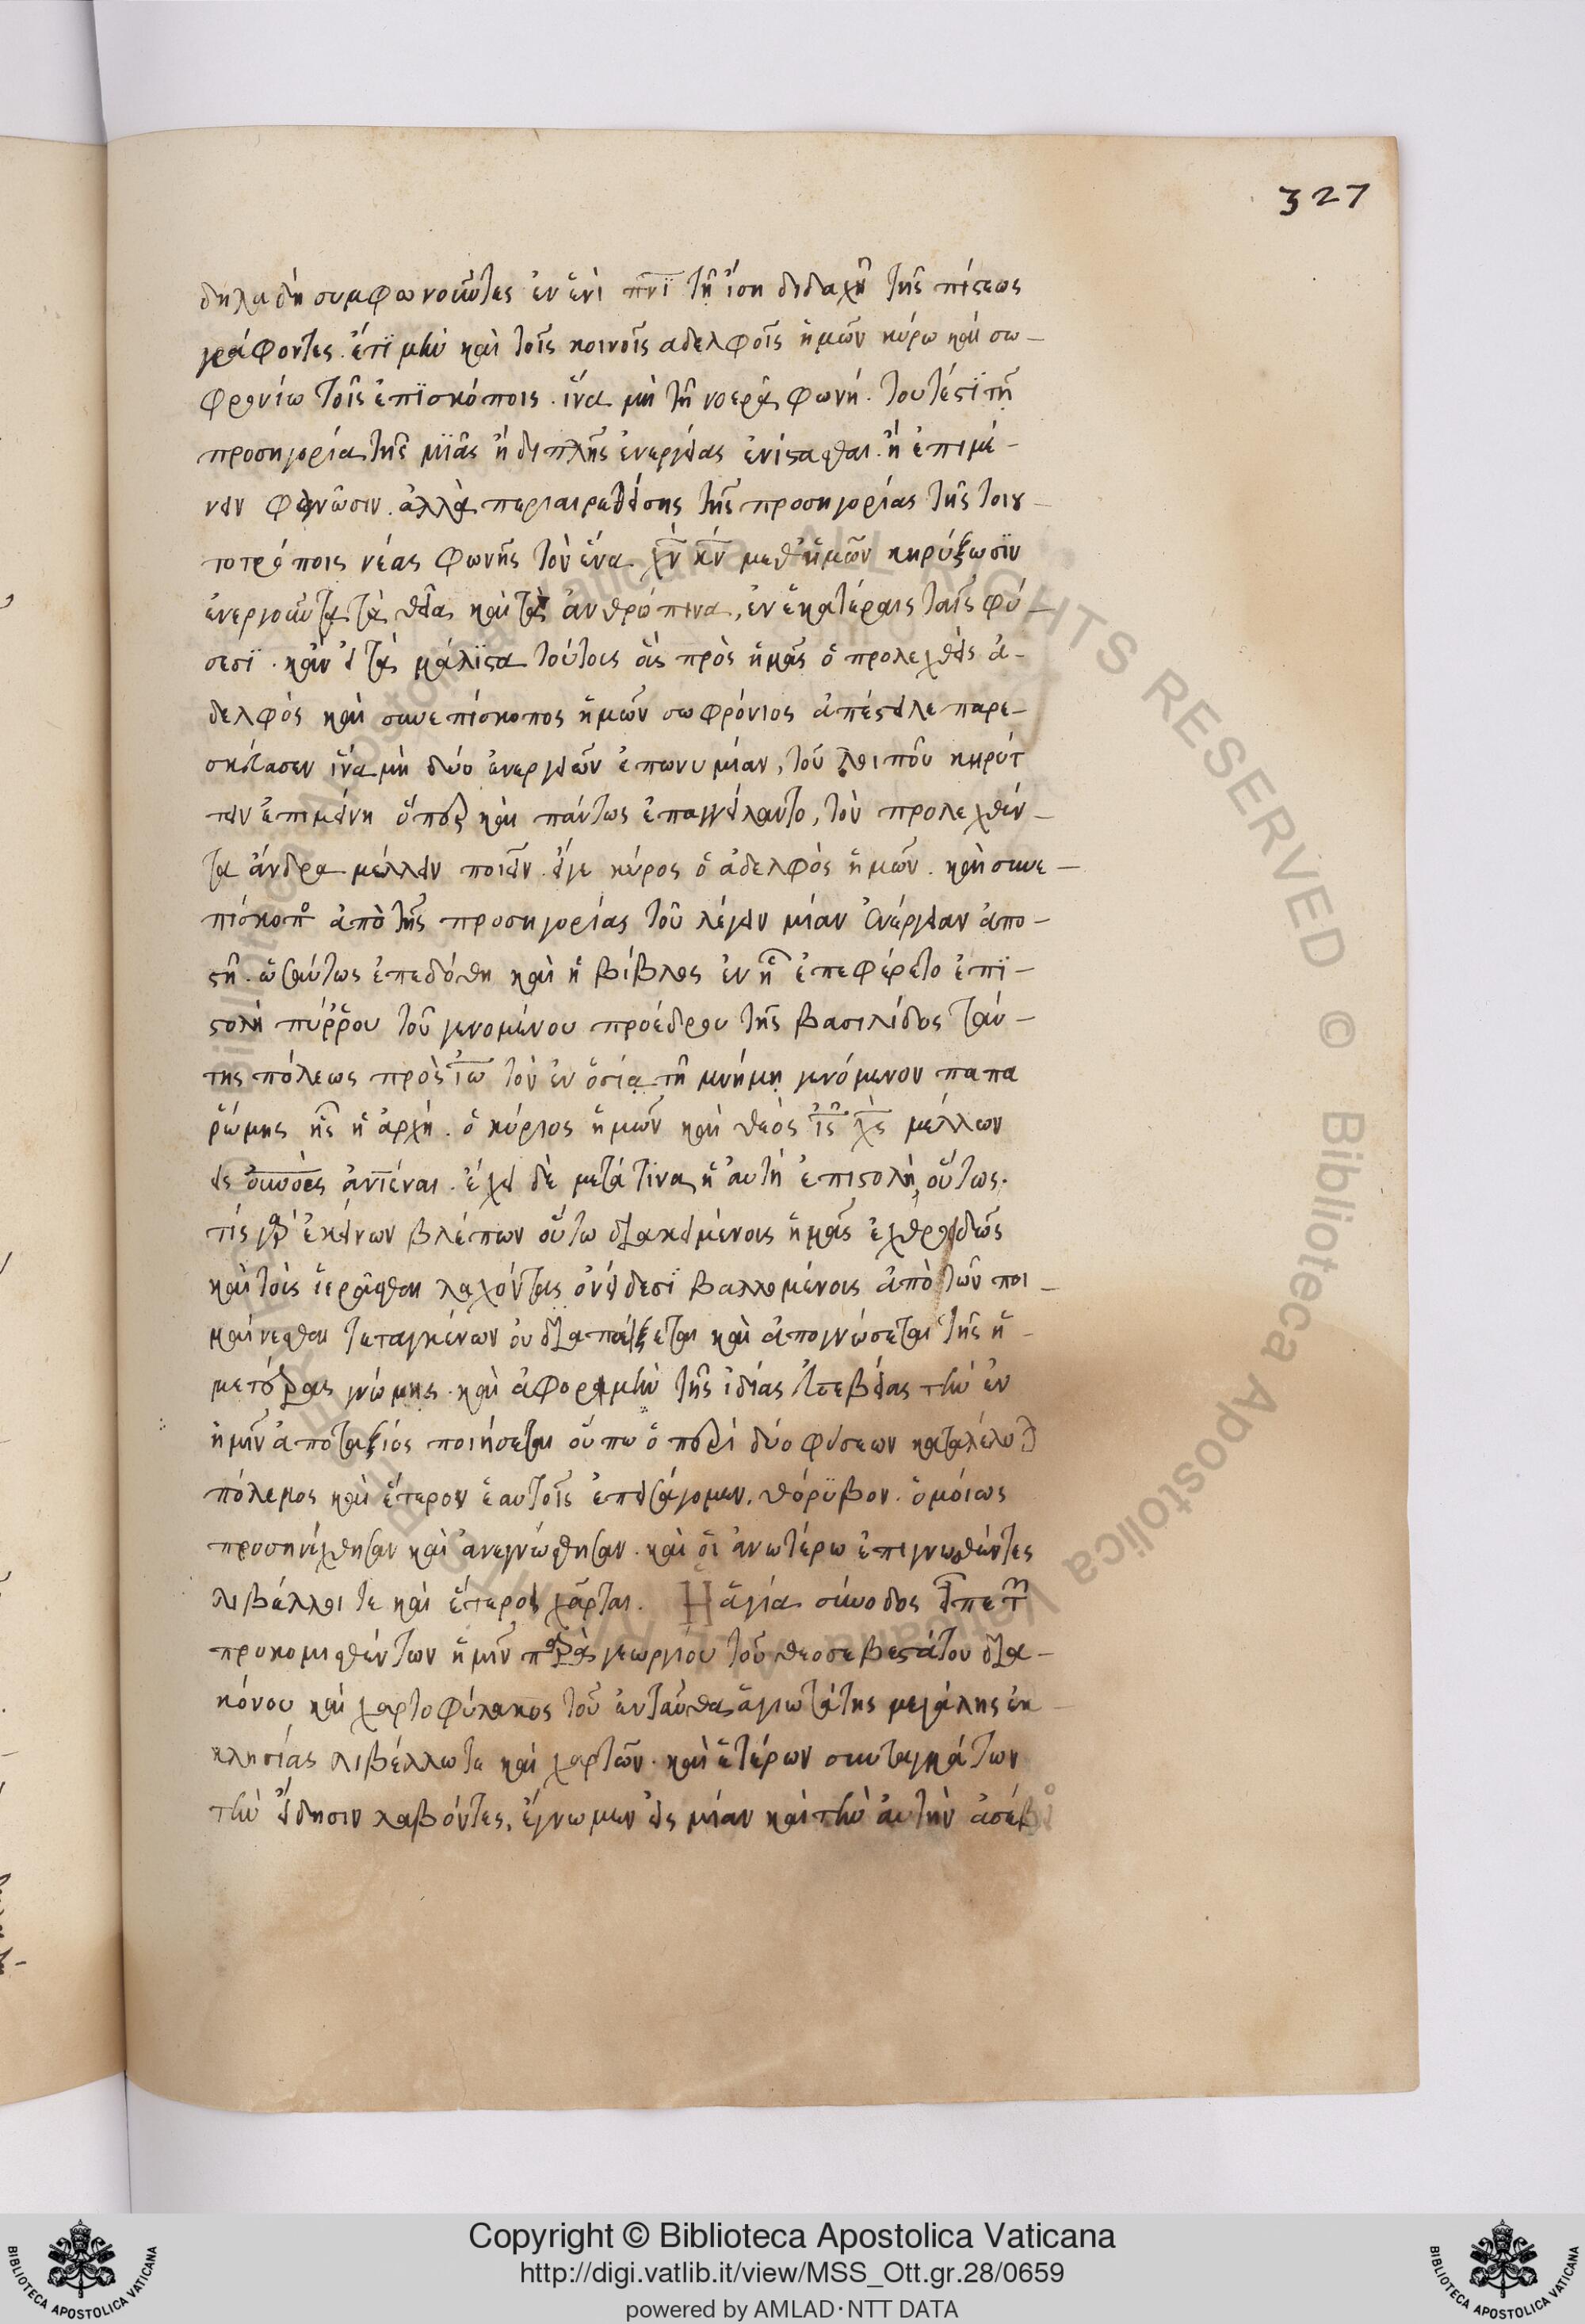 327
δηλαδὴ συμφωνοῦντες ἐν ἑνὶ πνϊ τῆ ἴση διδαχῆ τῆς πίστεως
γράφοντες. ἔτϊ μὴν καὶ τοῖς κοινοῖς αδελφοῖς ἡμῶν κύρω καὶ σω-
φρονίω τοῖς ἐπϊσκόποις. ἵνα μὴ τῆ νοερᾶ φωνή. τουτέστϊ τῆ
προσηγορία τῆς μϊᾶς ἢ διπλῆς ἐνεργείας ἐνίστασθαι. ἢ ἐπιμέ-
νειν φανῶσιν. ἀλλὰ περιαιρεθείσης τῆς προσηγορίας τῆς τοιου-
τοτρόποις νέας φωνῆς τὸν ἕνα χν κν μεθ ἡμῶν κηρύξωσϊν
ἐνεργοῦντα τὰ θεῖα καὶ τὰ ἀνθρώπινα, ἐν ἑκατέραις ταῖς φύ-
σεσϊ. κἂν εἰ τὰ μάλϊστα τούτοις οὓς πρὸς ἡμᾶς ὁ προλεχθεὶς ἀ-
δελφὸς καὶ συνεπίσκοπος ἡμῶν σωφρόνιος ἀπέστειλε παρε-
σκεύασεν ἵνα μὴ δύο ἐνεργειῶν ἐπωνυμίαν, τοῦ λοιποῦ κηρύτ
τειν ἐπιμείνη ὅπερ καὶ πάντως ἐπαγγείλαντο, τὸν προλεχθέν-
τα ἄνδρα μέλλειν ποιεῖν. εἴγε κύρος ὁ ἀδελφὸς ἡμῶν. καὶ συνε-
πίσκοπο ἀπὸ τῆς προσηγορίας τοῦ λέγειν μίαν ἐνέργειαν ἀπο-
στῆ. ὡσαύτως ἐπεδόθη καὶ ἡ βίβλος ἐν ἧ ἐπεφέρετο ἐπϊ-
στολὴ πύρρου τοῦ γενομένου προέδρου τῆς βασιλίδος ταύ-
της πόλεως πρὸς ἰω τὸν ἐν ὁσία τῆ μνήμη γενόμενον παπα
ῥώμης ἧς ἡ ἀρχή. ὁ κύριος ἡμῶν καὶ θεὸς ις χς μέλλων
εἰς ουνους ἀνϊέναι. ἔχει δὲ μετά τϊνα ἡ αυτὴ ἐπιστολὴ, οὕτως.
τίς γὰρ ἐκείνων βλέπων οὕτω διακειμένους ἡμᾶς ἐχθρωδῶς
καὶ τοὺς ἱερᾶσθαι λαχόντας ὀνείδεσϊ βαλλομένοις ἀπὸ τῶν ποι-
μαίνεσθαι τεταγμένων οὐ διαπαίξεται καὶ ἀπογνώσεται τῆς ἡ-
μετέρας γνώμης. καὶ ἀφορμὴν τῆς ἰδίας εὐσεβείας τὴν ἐν
ἡμῖν ἀποταξίος ποιήσεται οὔπω ὁ περὶ δύο φύσεων καταλέλυται
πόλεμος καὶ ἕτερον ἑαυτοῖς ἐπεισάγομεν. θόρϋβον. ὁμοίως
προσηνέχθησαν καὶ ἀνεγνώσθησαν. καὶ οἱ ἀνωτέρω ἐπιγνωσθέντες
λιβέλλοι τε καὶ ἕτεροι χάρται. Ἡ ἁγία σύνοδος εἶπε τῶν
προκομισθέντων ἡμῖν παρὰ γεωργίου τοῦ θεοσεβεστάτου δια-
κόνου καὶ χαρτοφύλακος τοῦ ἐνταῦθα ἁγιωτάτης μεγάλης ἐκ-
κλησίας λιβέλλω τε καὶ χαρτῶν. καὶ ἑτέρων συνταγμάτων
τὴν εἴδησιν λαβόντες, ἔγνωμεν εἰς μίαν καὶ τὴν αὐτὴν ἀσέβει
Copyright © Biblioteca Apostolica Vaticana
http://digi.vatlib.it/view/MSS_Ott.gr.28/0659
powered by AMLAD·NTT DATA
BIBLIOTECA APOSTOLICA VATICANA
BIBLIOTECA APOSTOLICA VATICANA